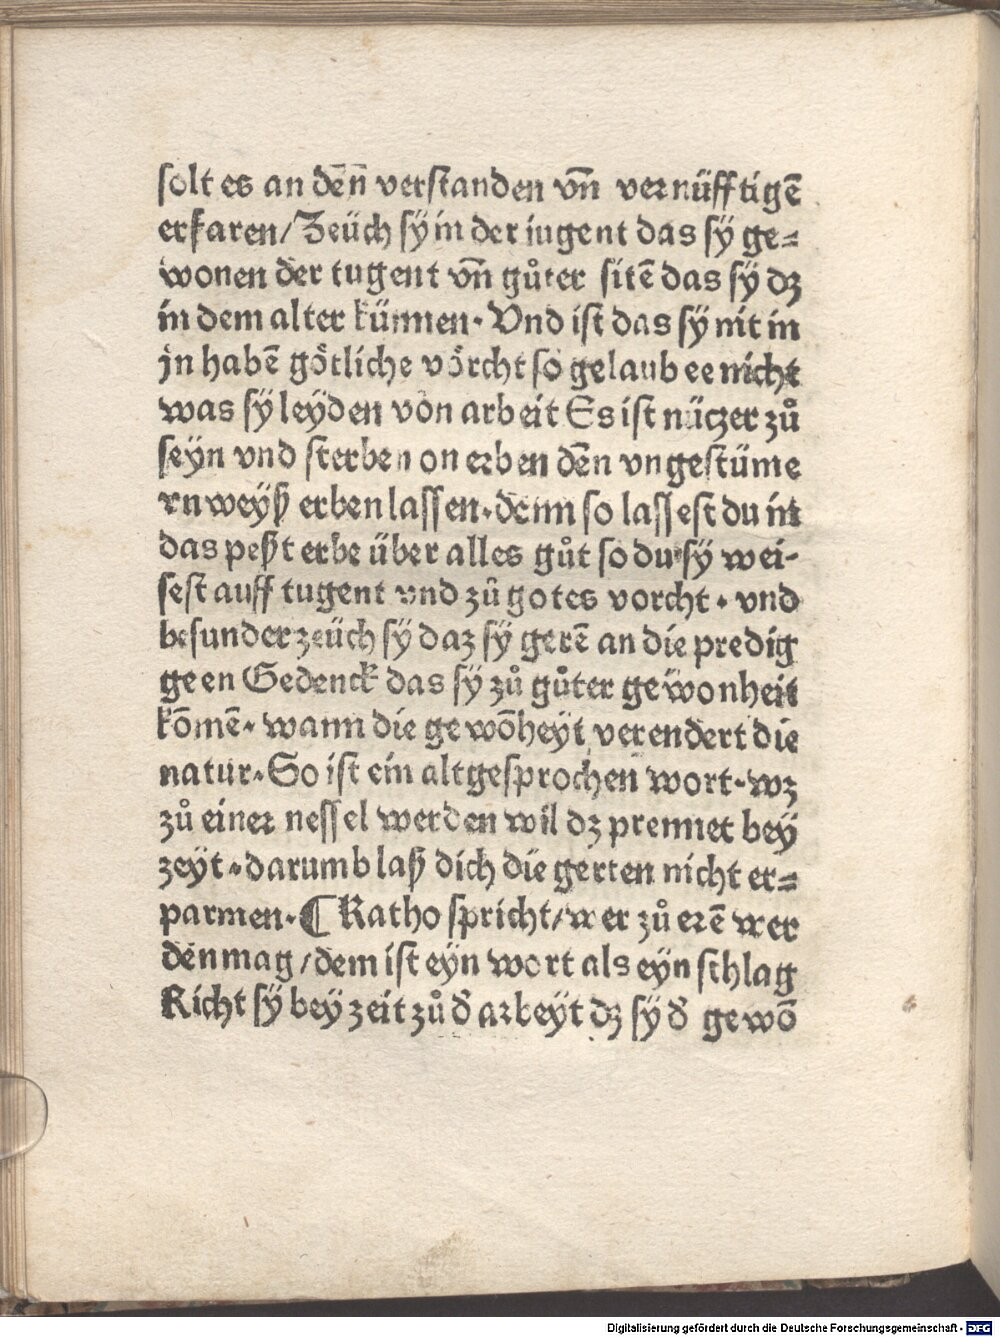 solt es an den̄ verstanden vn̄ vernüfftigē
erfaren/Zeüch sÿ in der iugent das sÿ ge⸗
wonen der tugent vn̄ gůter sitē das sÿ dz
in dem alter künnen. Vnd ist das sÿ nit in
jn habē götliche vörcht so gelaub ee nicht
was sÿ leÿden von arbeit Es ist nüczer zů
seÿn vnd sterben on erben deñ vngestüme
vnweÿß erben lassen. denn so lassest du in
das peßt erbe über alles gůt so du sÿ wei-
sest auff tugent vnd zů gotes vorcht. vnd
besunder zeüch sÿ daz sÿ gerē an die predig
geen Gedenck das sÿ zů gůter gewonheit
kōmē. wann die gewōheÿt verendert die
natur. So ist ein altgesprochen wort. wz
zů einer nessel werden wil dz prennet beÿ
zeÿt. darumb laß dich die gerten nicht er⸗
parmen. ¶ Katho spricht/wer zů erē wer
den mag/dem ist eÿn wort als eÿn schlag
Richt sÿ beÿ zeit zů d̛ arbeÿt dz sÿ d̛ gewō
Digitalisierung gefördert durch die Deutsche Forschungsgemeinschaft - DFG